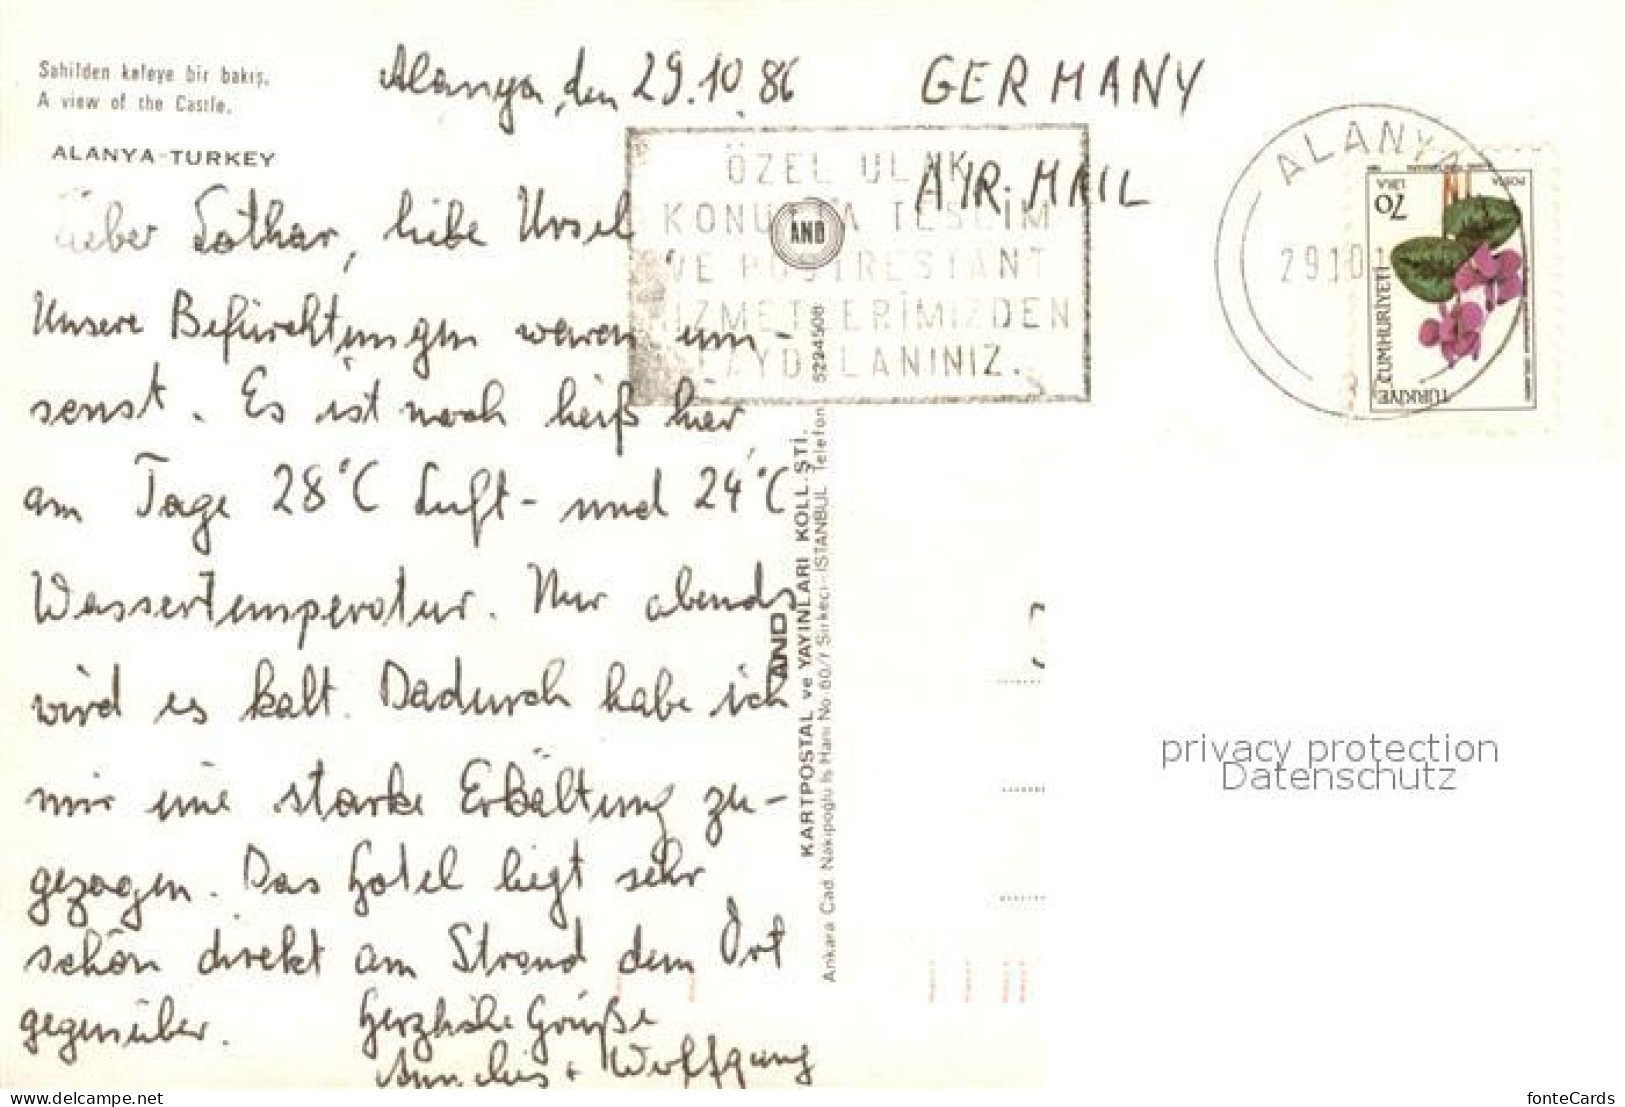 Sahilden kaleye bir bakış.
A view of the Castle.
ALANYA-TURKEY
Alanya, den 29.10.86
GERMANY
AIR-MAIL
Lieber Lothar, liebe Ursel
Unsere Befürchtungen waren um-
sonst. Es ist noch heiß hier,
am Tage 28°C Luft- und 24°C
Wassertemperatur. Nur abends
wird es kalt. Dadurch habe ich
mir eine starke Erkältung zu-
gezogen. Das Hotel liegt sehr
schön direkt am Strand dem Ort
gegenüber.
Herzliche Grüße
Annelies + Wolfgang
ÖZEL ULAK
KONUTTA TESLİM
VE POSTRESTANT
HİZMETLERİMİZDEN
FAYDALANINIZ.
AND
AND
KARTPOSTAL ve YAYINLARI KOLL. ŞTİ.
Ankara Cad. Nakipoğlu İş Hanı No: 60/1 Sirkeci-İSTANBUL Telefon 5224508
ALANYA
29.10.1
70
LİRA
POSTA
TÜRKİYE CUMHURİYETİ
privacy protection
Datenschutz
www.ansichtskarten-center.de
fonteCards